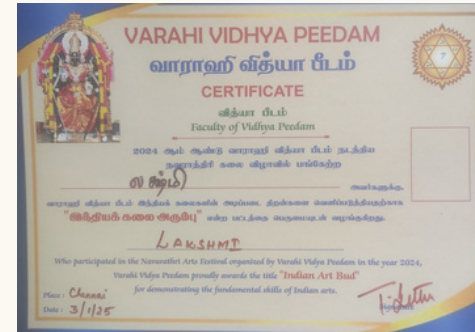 VARAHI VIDHYA PEEDAM
வாராஹி வித்யா பீடம்
CERTIFICATE
வித்யா பீடம்
Faculty of Vidhya Peedam
2024 ஆம் ஆண்டு வாராஹி வித்யா பீடம் நடத்திய
நவராத்திரி கலை விழாவில் பங்கேற்ற
லஷ்மி அவர்களுக்கு,
வாராஹி வித்யா பீடம் இந்தியக் கலைகளின் அடிப்படை திறன்களை வெளிப்படுத்தியதற்காக
"இந்தியக் கலை அரும்பு" என்ற பட்டத்தை பெருமையுடன் வழங்குகிறது.
LAKSHMI
Who participated in the Navarathri Arts Festival organised by Varahi Vidya Peedam in the year 2024,
Varahi Vidya Peedam proudly awards the title "Indian Art Bud"
for demonstrating the fundamental skills of Indian arts.
Place : Chennai
Date : 3/1/25